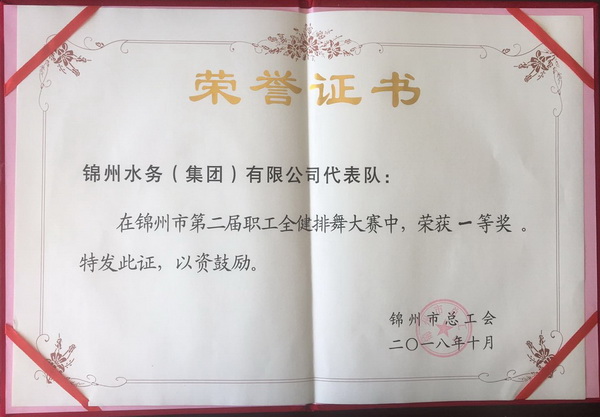 荣誉证书
锦州水务（集团）有限公司代表队：
在锦州市第二届职工全健排舞大赛中，荣获一等奖。
特发此证，以资鼓励。
锦州市总工会
二〇一八年十月